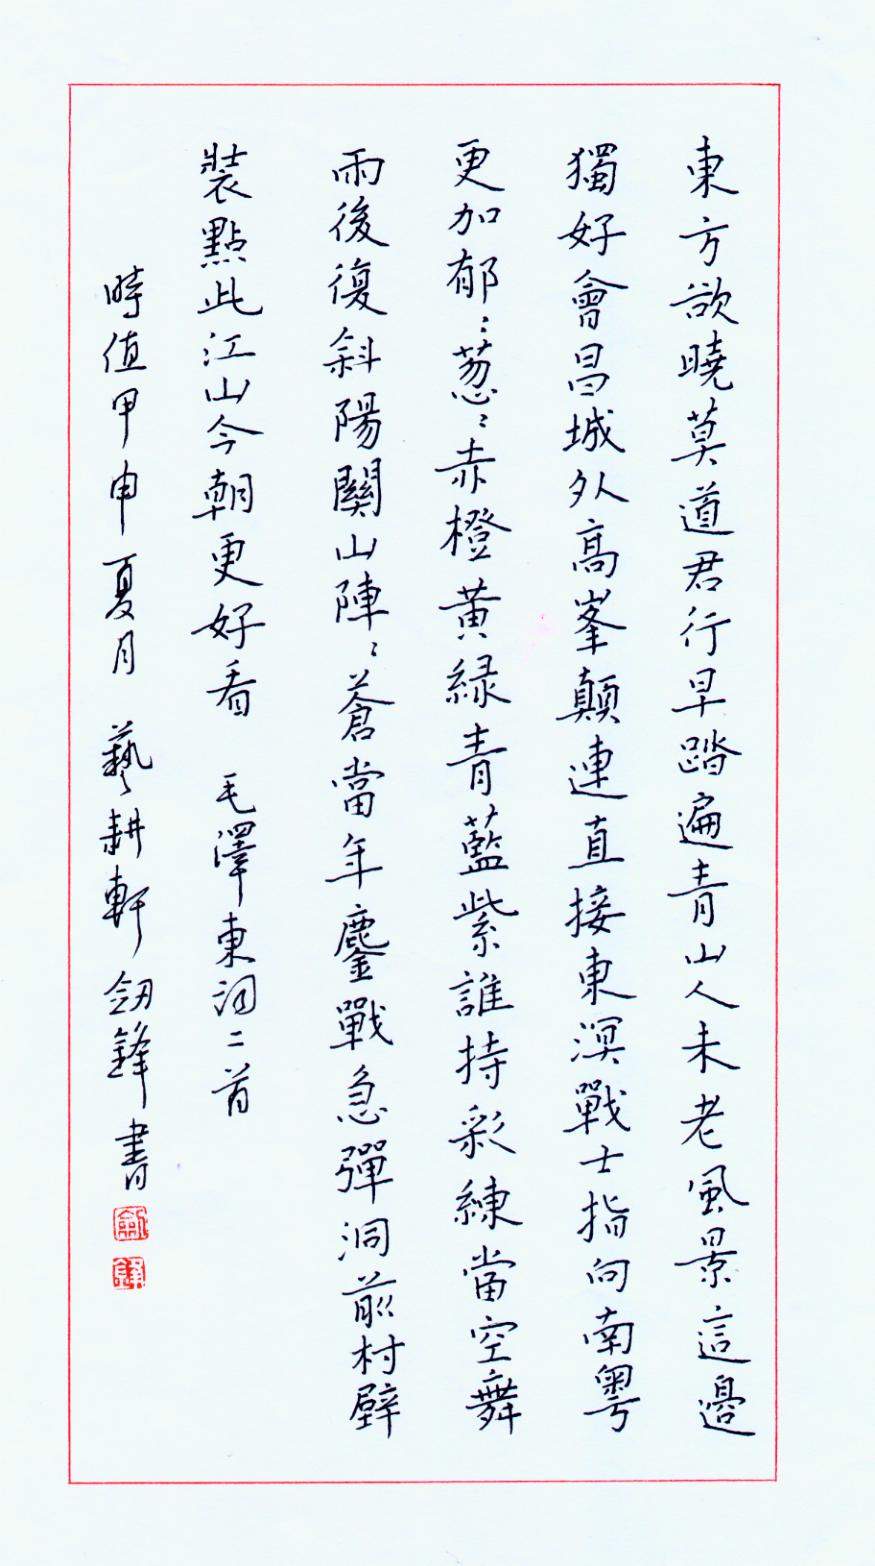 東方欲曉莫道君行早踏遍青山人未老風景這邊
獨好會昌城外高峯顛連直接東溟戰士指向南粵
更加郁⺀葱⺀赤橙黄緑青藍紫誰持彩練當空舞
雨後復斜陽關山陣⺀蒼當年鏖戰急彈洞前村壁
裝點此江山今朝更好看 毛澤東詞二首
時值甲申夏月 藝耕軒 劒鋒書